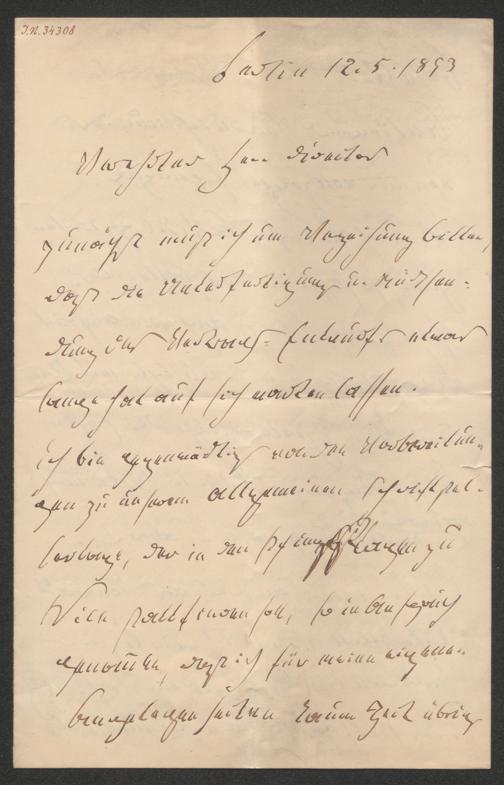 I.N. 34308
Berlin 12.5.1893
Verehrter Herr Direktor
zunächst muß ich um Verzeihung bitten,
daß die Unterfertigung u. Rücksen-
dung des Vertrags-Entwurfs etwas
lange hat auf sich warten lassen.
Ich bin gegenwärtig von den Vorbereitun-
gen zu unserem allgemeinen
der in den zu
Wien stattfinden soll, so in Anspruch
genommen, daß ich für meine eigenen
Angelegenheiten kaum Zeit übrig